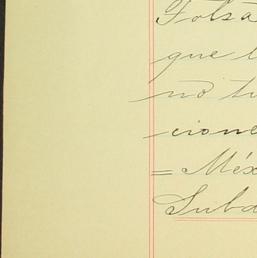 Folsa
que l
no tu
cione
= Méx
Subd